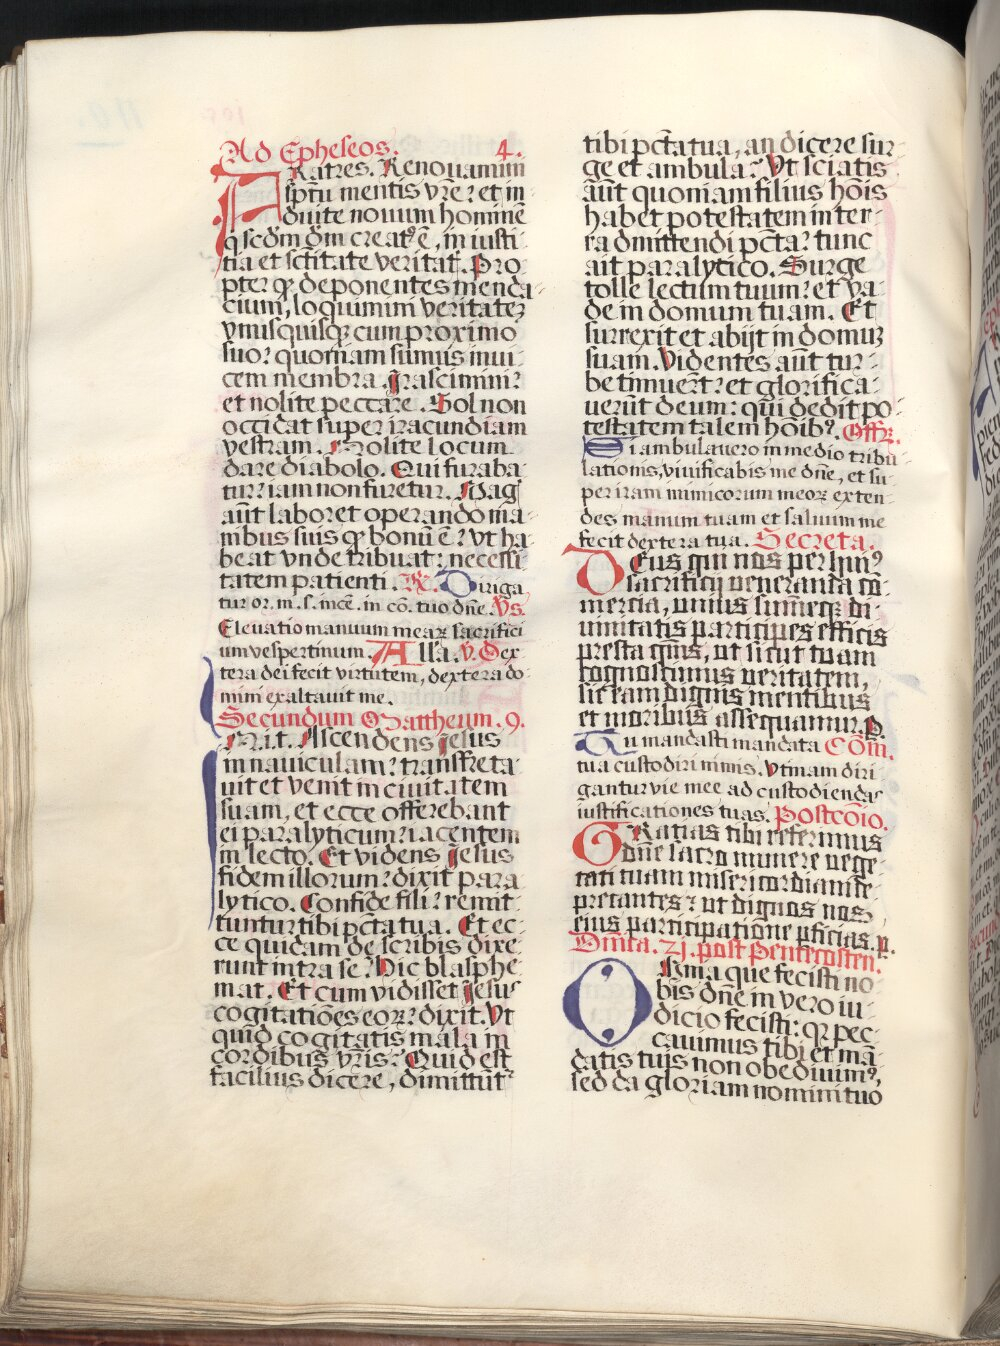 Ad Epheseos. 4.
FRatres. Renouamini
sp̄tu mentis vr̄e: et in
duite nouum hominē
q̇ scd̄m dm̄ creatꝰ ē, in iusti
tia et sc̄titate veritat̄. Pro
pter qḋ deponentes menda
cium, loquimini veritatēȝ
vnusquisqꝫ cum proximo
suo: quoniam sumus inui
cem membra. Irascimini:
et nolite peccare. Sol non
occidat super iracundiam
vestram. Nolite locum
dare diabolo. Qui furaba
tur: iam non furetur. Mag̃
aūt laboret operando ma
nibus suis qḋ bonū ē: vt ha
beat vnde tribuat: necessi
tatem patienti. R. Diriga
tur or. m. s. incē. in cō. tuo dn̄e. Vs.
Eleuatio manuum mearꝝ sacrifici
um vespertinum. Alla. v. Dex
tera dei fecit virtutem, dextera do
mini exaltauit me.
Secundum Mattheum. 9.
IN. i. t. Ascendens Jesus
in nauiculam: transfreta
uit et venit in ciuitatem
suam, et ecce offerebant
ei paralyticum: iacentem
in lecto. Et videns Jesus
fidem illorum: dixit para
lytico. Confide fili: remit
tuntur tibi pc̄ta tua. Et ec
ce quidam de scribis dixe
runt intra se: Hic blasphe
mat. Et cum vidisset Jesus
cogitatiōes eorꝝ: dixit. Vt
quid cogitatis mala in
cordibus vr̄is? Quid est
facilius dicere, dimittūt̄
tibi pc̄ta tua, an dicere sur
ge et ambula? Vt sciatis
aūt quoniam filius hōis
habet potestatem in ter
ra dimittendi pc̄ta: tunc
ait paralytico. Surge
tolle lectum tuum: et va
de in domum tuam. Et
surrexit et abijt in domuȝ
suam. Videntes aūt tur
be timuer̄t: et glorifica
uerūt deum: qui dedit po
testatem talem hōibꝰ. Offr̄.
Si ambulauero in medio tribu
lationis, viuificabis me dn̄e, et su
per iram inimicorum meorꝝ exten
des manum tuam et saluum me
fecit dextera tua. Secreta.
DEus qui nos per huiꝰ
sacrificij veneranda cō
mercia, unius sum̄eqꝫ di
uinitatis participes efficis
presta qūs, ut sicut tuam
cognoscimus veritatem,
sic eam dignis mentibus
et moribus assequamur. P.
Tu mandasti mandata Cōm.
tua custodiri nimis. Vtinam diri
gantur vie mee ad custodiendas
iustificationes tuas. Postcōio.
GRatias tibi referimus
dn̄e sacro munere vege
tati tuam misericordiam de
precantes: ut dignos nos
eius participatione p̄ficias. p.
Dn̄ica. 21. post Pentecosten.
OMnia que fecisti no
bis dn̄e in vero iu
dicio fecisti: qꝛ pec
cauimus tibi et mā
datis tuis non obediuimꝰ,
sed da gloriam nomini tuo